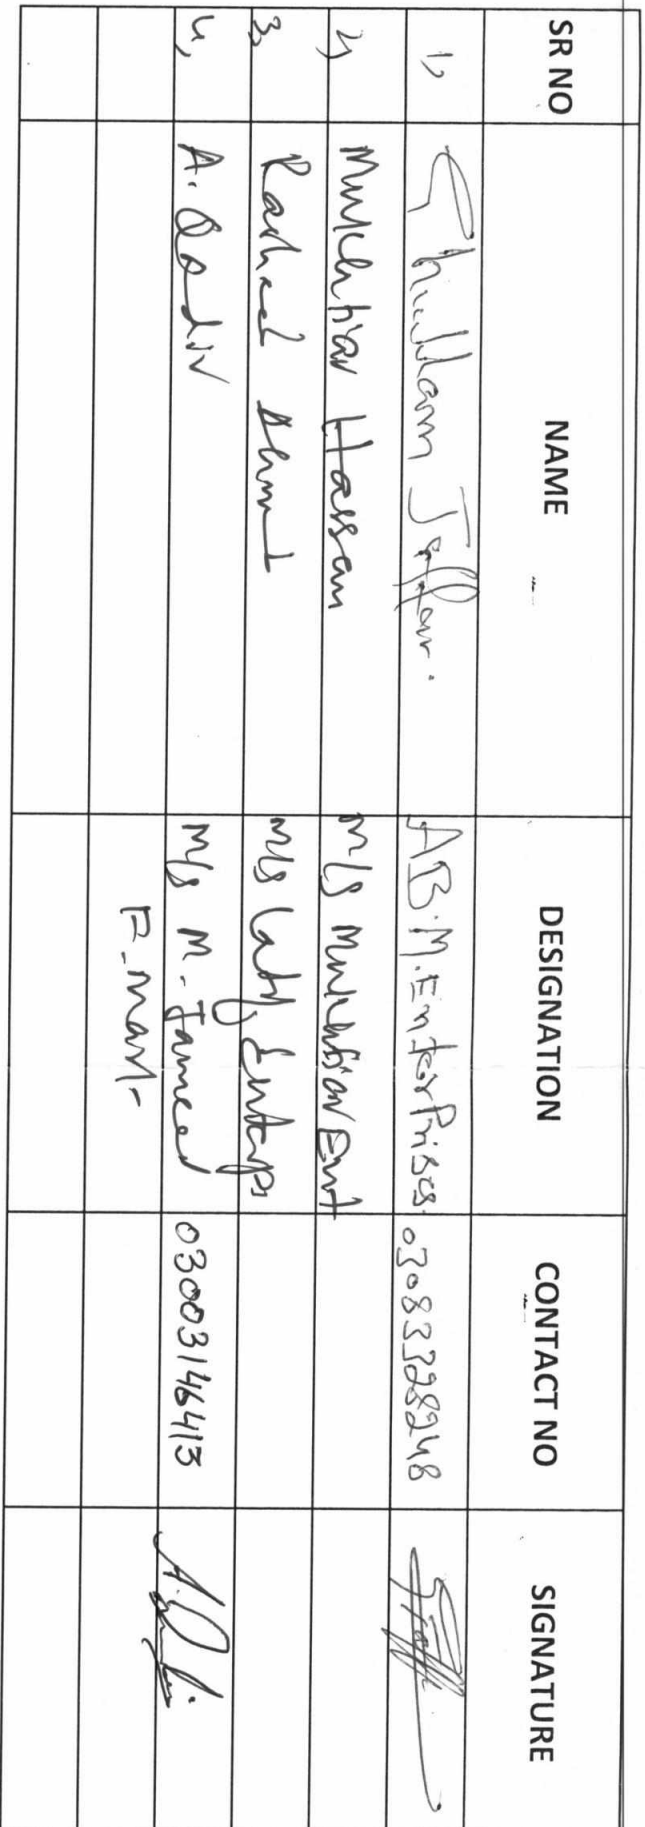 SR NO NAME DESIGNATION CONTACT NO SIGNATURE
1, Ghullam Jaffar. AB.M.EnterPrises. 03083328248
2, Mukhtiar Hassan M/s Mukhtiar Ent
3, Rashed Ahmed M/s Enterps
4, A. Qadir M/s M. Jameel 03003146413
F_mart-